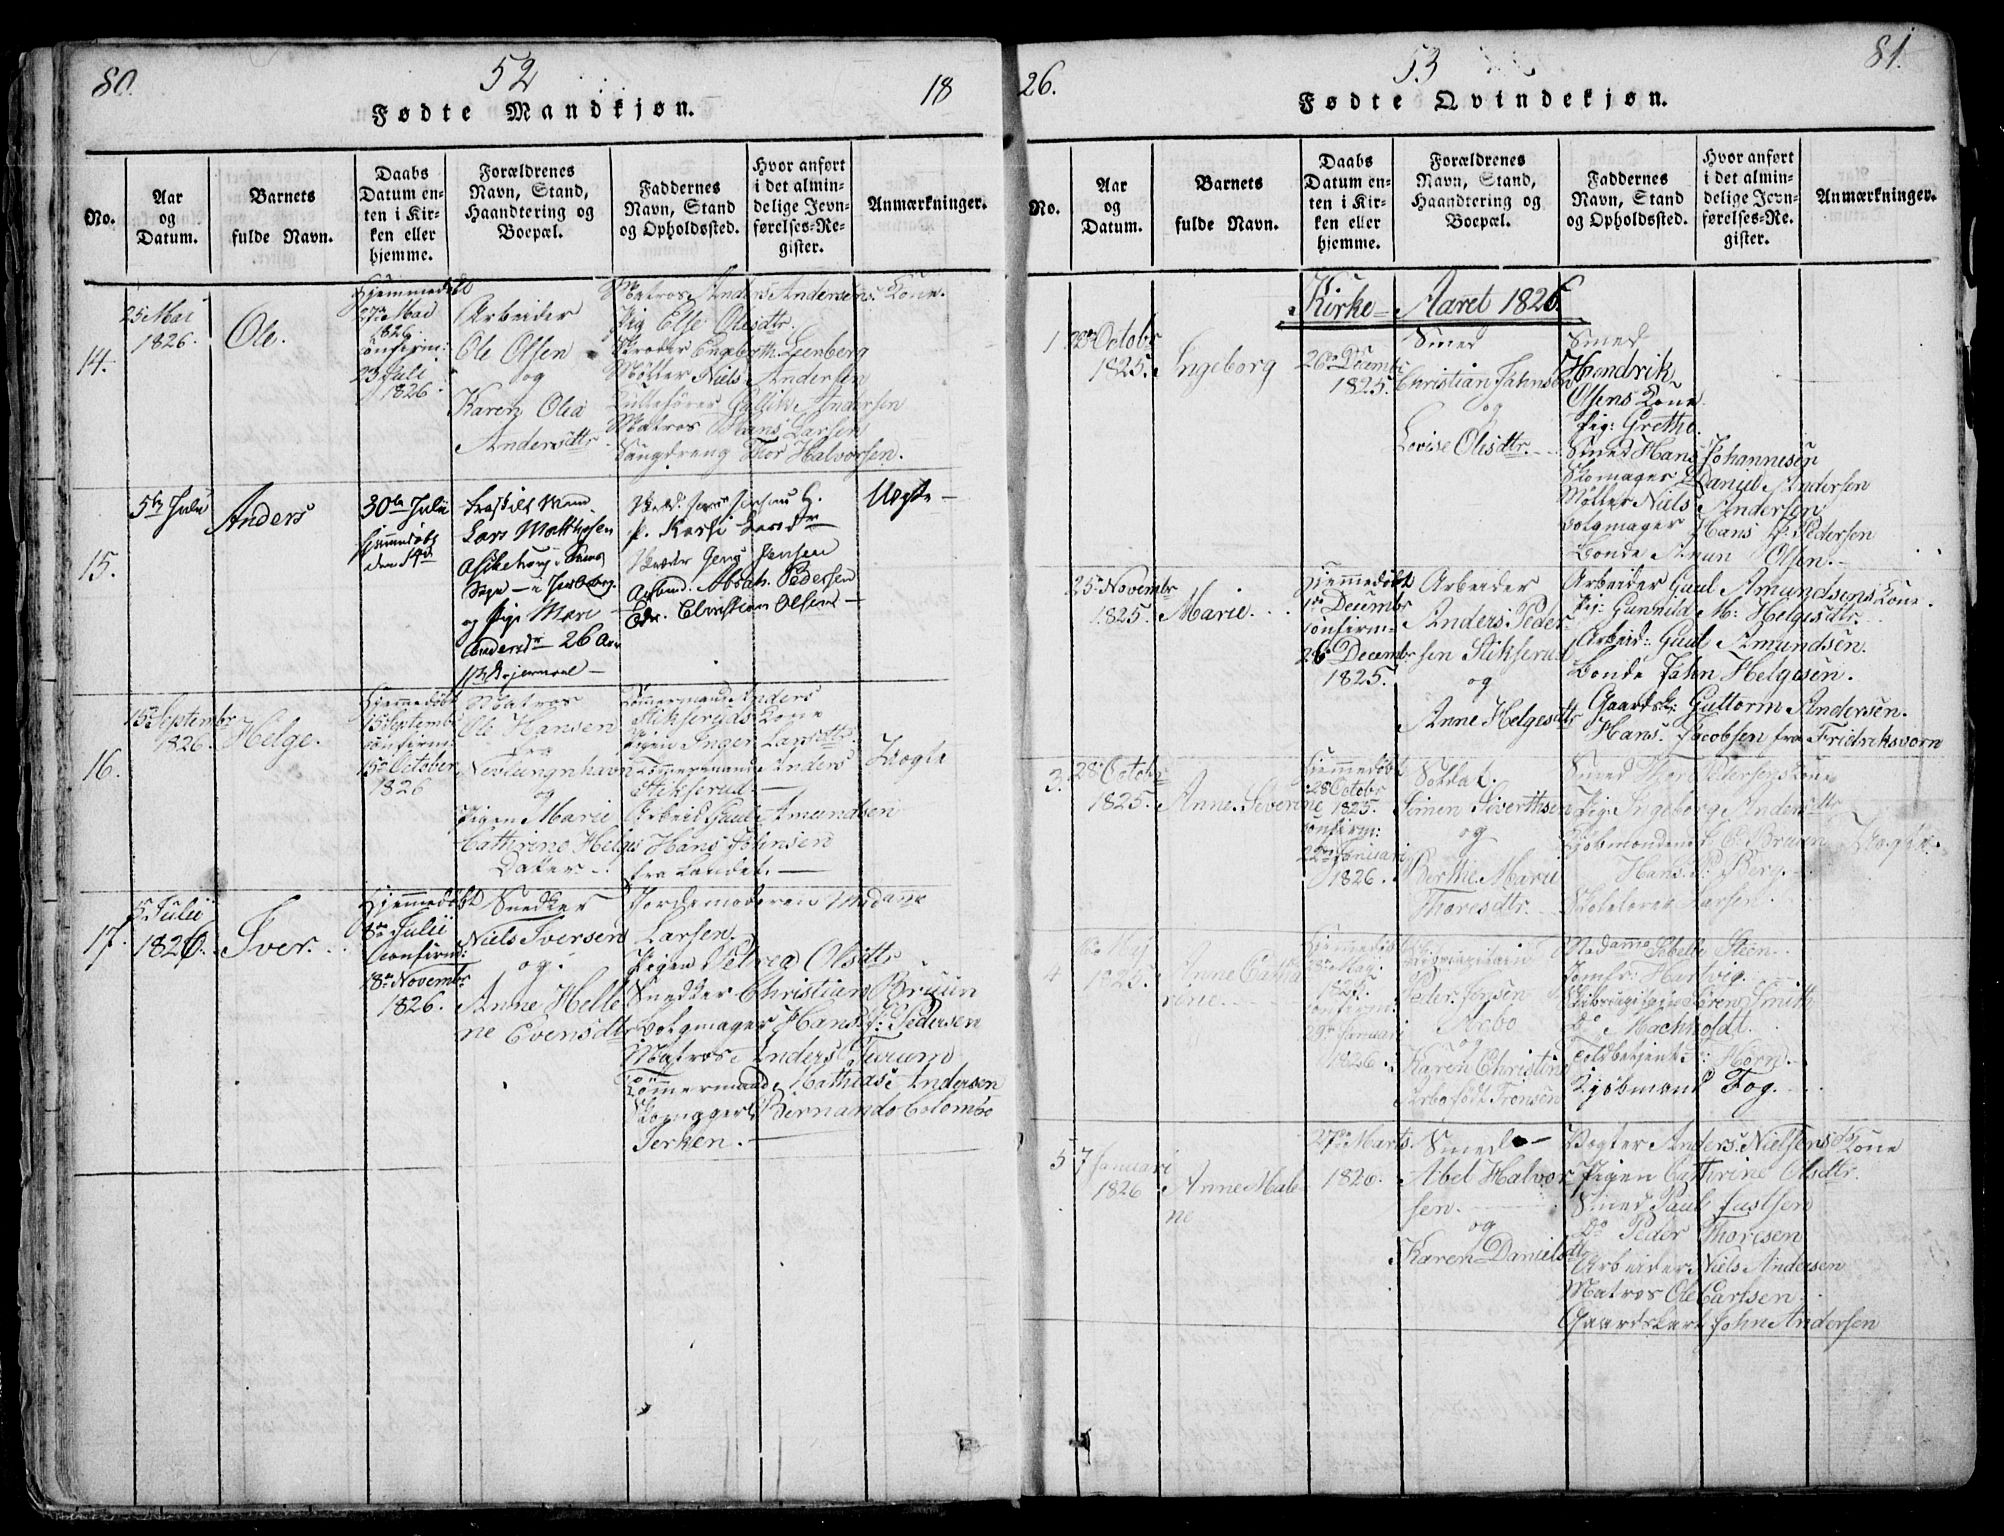 80.
52
18
Fødte Mandkjøn.
No.
Aar
og
Datum.
Barnets
fulde Navn.
Daabs
Datum en-
ten i Kir-
ken eller
hjemme.
Forældrenes
Navn, Stand,
Haandtering og
Boepæl.
Faddernes
Navn, Stand
og Opholdssted.
Hvor anført
i det almin-
delige Jevn-
førelses-Re-
gister.
Anmærkninger.
14.
25 Mai
1826.
Ole.
Hjemmedøbt
27de Mai
1826.
Confirm:
23 Juli
1826.
Arbeider
Ole Olsen
og
Karen Olea
Andersdtr
Matros Anders Andersens Kone.
Pig Else Olisdtr.
Engebreth
Møller Niels Andersen
Gullik Andersen
Matros Hans Larsen
Thor Halvorsen.
15.
5te Julii
Anders
30te Julii
hjemmedøbt
den 14de
Lars Matthisen
og Pige Mari
Andersdr 26 Aar
Jens Jensen
Arbeid. Abrah. Pedersen
Christian Olsen
Uægte
16.
15de Septembr
1826.
Helge.
Hjemmedøbt
15 Septembr
Confirm:
15de October
1826
Matros
Ole Hansen
fra
Nevlunghavn
og
Pigen Marie
Cathrine Helges
Datter.
Tømmermand Anders
Stikseruds Kone
Pigen Inger Larsdtr
Tømmermand Anders
Stikserud
Arbeid Gaul Amundsen
Hans Johnsen
fra Landet.
Uægte
17.
5 Julii
1826.
Iver.
Hjemmedøbt
8de Julii
Confirmd:
18de Novembr
1826.
Snedker
Niels Iversen
og
Anne Helle
ne Evensdtr
Jordemoderen Madame
Larsen.
Pigen Petrea Olsdtr
Snedker Christian Bruun
Bolgmager Hans P: Pedersen
Matros Anders
Tømmermand Mathias Andersen
Bernando Colombo
Terken.
26.
53
81.
Fødte Qvindekjøn.
No.
Aar
og
Datum.
Barnets
fulde Navn.
Daabs
Datum en-
ten i Kir-
ken eller
hjemme.
Forældrenes
Navn, Stand,
Haandtering og
Boepæl.
Faddernes
Navn, Stand
og Opholdssted.
Hvor anført
i det almin-
delige Jevn-
førelses-Re-
gister.
Anmærkninger.
Kirke-Aaret 1826
1
Octobr
1825.
Ingeborg
26de Decembr
1825.
Smed
Christian Jahnsen
og
Lovise Olisdtr.
Smed
Hendrik
Olsens Kone.
Pig: Grethe
Smed Hans Johannesen
Skomager Daniel Andersen
Møller Niels Andersen
Bolgmager Hans P: Pedersen
Bonde Anun Olsen.
25de Novembr
1825.
Marie.
Hjemmedøbt
1de Decembr
Confirm-
26 Decembr
1825.
Arbeider
Anders Peder-
sen Stikserud
og
Anne Helgesdtr
Arbeider Gaul Amundsens Kone.
Pig: Gunnild M: Helgesdtr.
Arbeid: Gaul Amundsen.
Bonde Jahn Helgesen.
Gaardsk: Guttorm Andersen.
Hans Jacobsen fra Fridriksvorn
3.
28 Octobr
1825.
Anne Severine
Hjemmedøbt
28 Octobr
1825.
Confirm:
22 Januari
1826.
Soldat.
Simen Siverthsen
og
Berthe Marie
Thoresdtr.
Smed Thor Pedersens Kone
Pig: Ingeborg Andersdtr
Kjøbmand C: Bruun
Hans P: Berg.
Larsen.
Uægte.
4
Maj
1825.
Anne Catha
rine.
Hjemmedøbt
Maj
1825.
Confirm:
29de Januari
1826.
Peder Jensen
Arbo
og
Karen Christine
Arbo født Tronsen
Madamme Sibelle Steen
Jomfr: Hartvig
Søren Smith
Do Machholdt.
Toldbetjent Horn
Kjøbmand Fog.
5
7 Januari
1826
Anne Male-
ne
27de Marts
1826.
Smed
Abel Halvor-
sen.
og
Karen Danielsdtr
Vogter Anders Nielsens Kone
Pigen Cathrine Olsdtr.
Smed Paul
Do Peder Thoresen
Arbeider Niels Andersen
Matros Ole Carlsen
Gaardskarl John Andersen